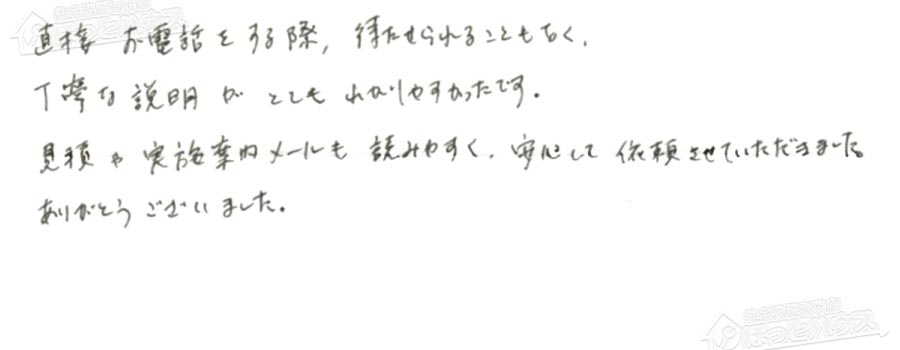 直接 お電話をする際, 待たせられることもなく,
丁寧な説明が とても わかりやすかったです。
見積や実施案内メールも 読みやすく, 安心して 依頼させていただきました。
ありがとうございました。
住宅設備専門店
ほっとハウス